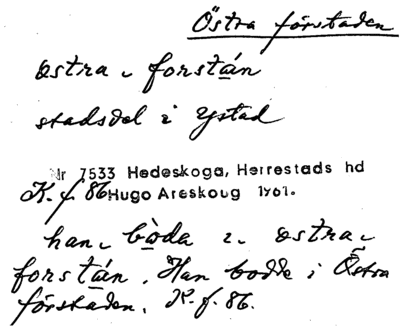 Östra förstaden
østra ˬ forstán
stadsdel i Ystad
Nr 7533 Hedeskoga, Herrestads hd
K. f. 86. Hugo Areskoug 1961.
han ˬ bòda ı østra ˬ
forstán. Han bodde i Östra
förstaden. K. f. 86.